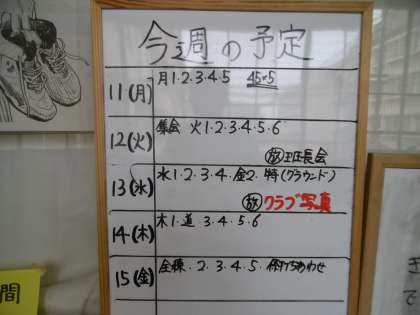 今週の予定
11(月) 月1・2・3・4・5 45×5
12(火) 集会 火1・2・3・4・5・6
放 班長会
13(水) 水1・2・3・4・金2・特(グラウンド)
放 クラブ写真
14(木) 木1・道 3・4・5・6
15(金) 全棟・2・3・4・5・
間